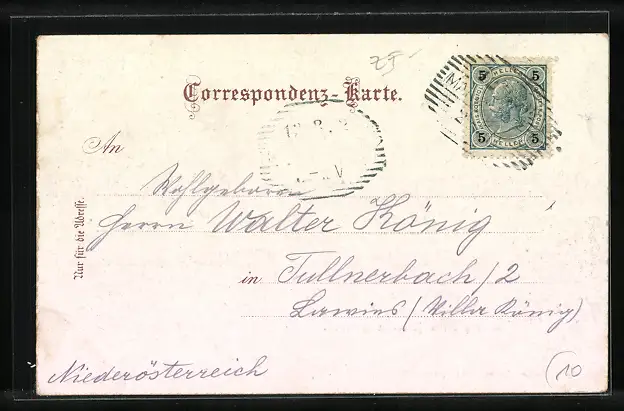 ZF-
Correspondenz-Karte.
5 HELLER 5
5 HELLER 5
An
Wohlgeboren
Herrn Walter König
in Tullnerbach/2
Lawies (Villa König)
Niederösterreich
Nur für die Adresse.
10